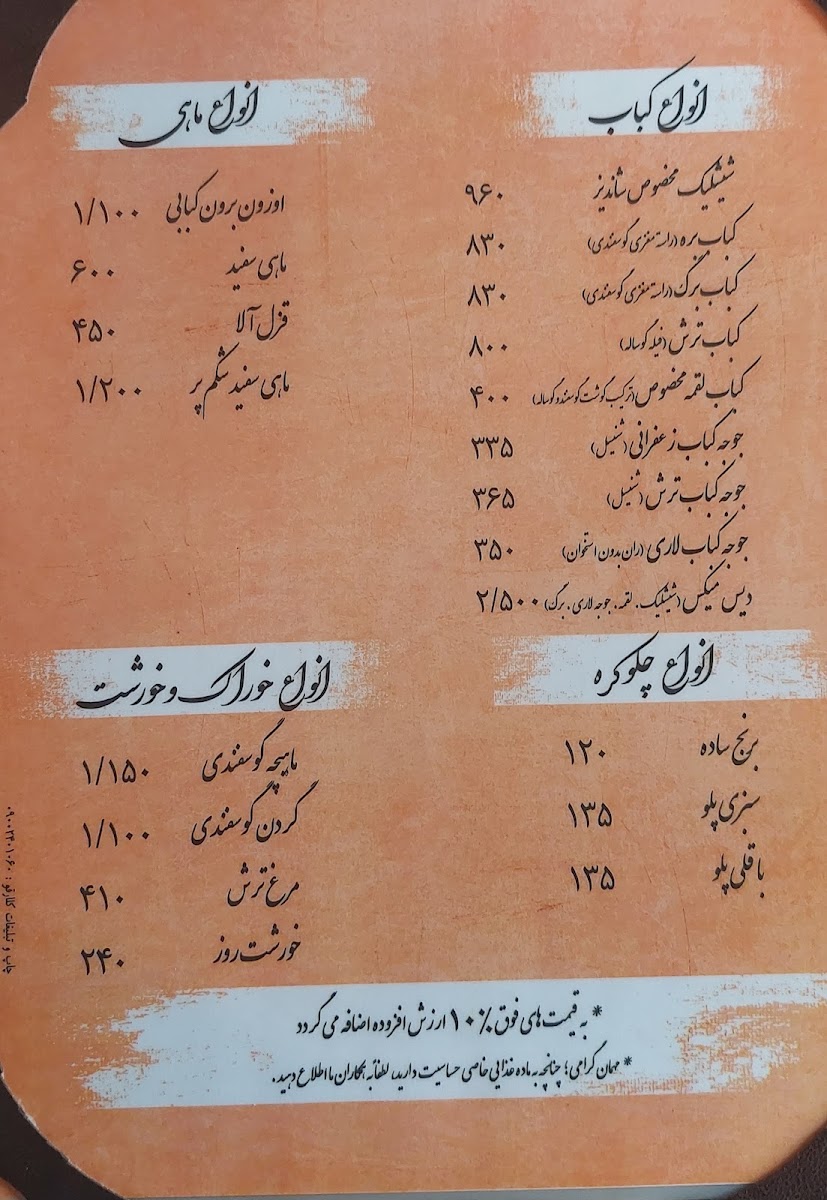 انواع کباب
شیشلیک مخصوص شاندیز ۹۶۰
کباب بره (راسته مغزی گوسفندی) ۸۳۰
کباب برگ (راسته مغزی گوسفندی) ۸۳۰
کباب ترش (فیله گوساله) ۸۰۰
کباب لقمه مخصوص (ترکیب گوشت گوسفند و گوساله) ۴۰۰
جوجه کباب زعفرانی (شنیسل) ۳۳۵
جوجه کباب ترش (شنیسل) ۳۶۵
جوجه کباب لاری (ران بدون استخوان) ۳۵۰
دیس میکس (شیشلیک . لقمه . جوجه لاری . برگ) ۲/۵۰۰
انواع ماهی
اوزون برون کبابی ۱/۱۰۰
ماهی سفید ۶۰۰
قزل آلا ۴۵۰
ماهی سفید شکم پر ۱/۲۰۰
انواع چلوکره
برنج ساده ۱۲۰
سبزی پلو ۱۳۵
باقلی پلو ۱۳۵
انواع خوراک و خورشت
ماهیچه گوسفندی ۱/۱۵۰
گردن گوسفندی ۱/۱۰۰
مرغ ترش ۴۱۰
خورشت روز ۲۴۰
* به قیمت های فوق ۱۰٪ ارزش افزوده اضافه می گردد
* مهمان گرامی؛ چنانچه به ماده غذایی خاصی حساسیت دارید، لطفا به همکاران ما اطلاع دهید.
چاپ و تبلیغات کلارقو : ۰۹۰۰۲۴۰۱۰۶۰